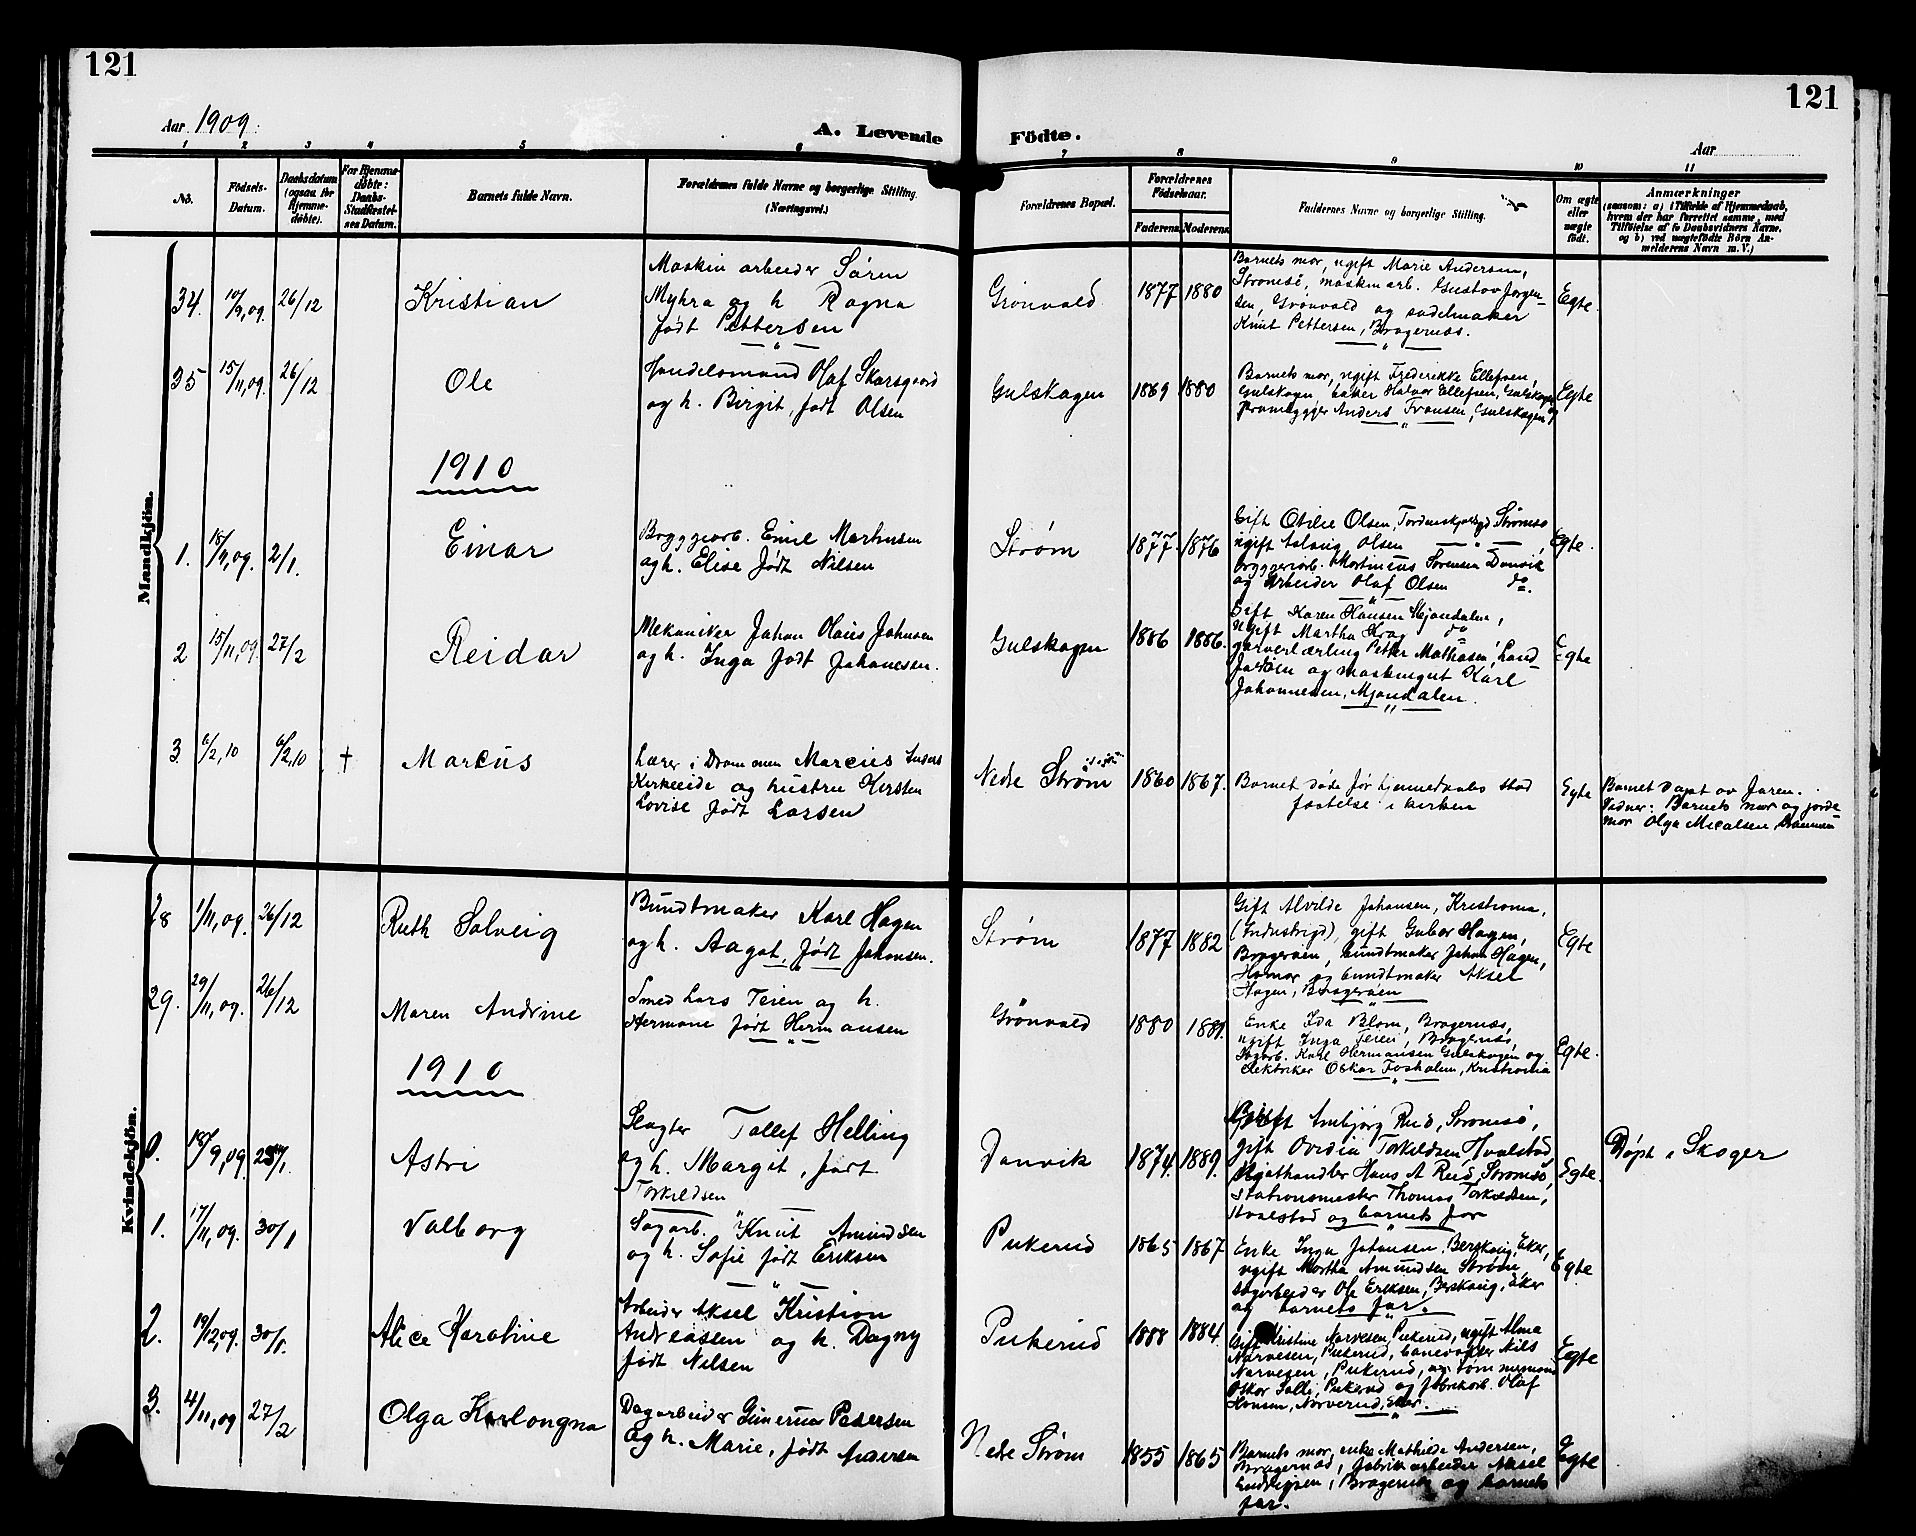 121
121
Aar 1909.
A. Levende
Födte.
Aar
1
2
3
4
5
6
7
8
9
10
11
No.
Födsels-
Datum.
Daabsdatum
(ogsaa for
Hjemme-
döbte).
For Hjemme-
döbte:
Daabs-
Stadfæstel-
ses Datum.
Barnets fulde Navn.
Forældrenes fulde Navne og borgerlige Stilling.
(Næringsvei.)
Forældrenes Bopæl.
Forældrenes
Födselsaar.
Faderens
Moderens
Faddernes Navne og borgerlige Stilling.
Om ægte
eller
uægte
födt.
Anmærkninger
(saasom: a) i Tilfælde af Hjemmedaab,
hvem der har forrettet samme, med
Tilföielse af to Daabsvidners Navne,
og b) ved uægtefödte Börn An-
melderens Navn m. V.)
Mandkjön.
34. 10/9,09. 26/12
Kristian
Maskin arbeider Søren
Myhra og h. Ragna
født Pettersen
Grönvold
1877 1880
Barnets mor, ugift Marie Andersen,
Strømsö, maskinarb. Gustav Jørgen-
sen, Grønvold og sadelmaker
Knut Pettersen, Bragernæs.
Egte.
35 15/11,09. 26/12
Ole
Handelsmand Olaf Skarsgaard
og h. Birgit, født Olsen
Gulskogen
1869 1880
Barnets mor, ugift Frederikke Ellefsen,
Gulskogen, baker Halvor Ellefsen, Gulskogen og
Anders Fransen, Gulskogen
Egte
1910
1. 18/9,09. 2/1.
Einar
Bryggeriarb. Emil Martinsen
og h. Elise født Nilsen
Strøm
1877. 1876
Gift Otilie Olsen, Tordenskjoldsgd Strømsø
ugift Solveig Olsen
bryggeriarb. Martinius Sørensen Danvik
og arbeider Olaf Olsen do.
Egte.
2 15/11,09. 27/2
Reidar
Mekaniker Johan Olaus Johnsen
og h. Inga født Johanessen.
Gulskogen
1886 1886.
Gift Karen Hansen Mjøndalen,
Ugift Martha Krog do
garverlærling Petter Mathisen, Land-
og maskingut Karl
Johannesen, Mjøndalen.
Egte
3. 6/2,10 6/2,10 †
Marcus
Lærer i Drammen Marcus
Kirkeeide og hustru Kirsten
Lovise født Larsen
Nedre Strøm
1860 1867.
Barnet døde før hjemmedaabs stad
fæstelse i kirken
Egte
Barnet døpt av faren.
Vidner: Barnets mor og jorde
mor Olga Micalsen Drammen
Kvindekjön.
28 1/11,09. 26/12
Ruth Solveig
Bundtmaker Karl Hagen
og h. Aagot, født Johansen.
Strøm
1877 1882
Gift Alvilde Johansen, Kristiania,
(Industrigd), gift Gubør Hagen,
Bragerøen, bundtmaker Johan Hagen,
Hamar og bundtmaker Aksel
Hagen, Bragerøen
Egte
29. 29/11,09. 26/12
Maren Andrine
Smed Lars Teien og h.
Hermane født Hermansen
Grönvold
1880 1881.
Enke Ida Blom, Bragernæs,
ugift Inga Teien, Bragernæs,
Sagarb. Karl Hermansen Gulskogen og
elektriker Oskar Fosholm, Kristiania
Egte.
1910
0. 18/9,09 25/1.
Astri
Slagter Tollef Helling
og h. Margit, født
Torkildsen
Danvik
1874. 1889.
Gift Ambjørg Rud, Strømsø,
gift Ovidia Torkildsen, Hvalstad,
Hans A. Rud, Strømsø,
stationsmester Thomas Torkildsen,
Hvalstad og barnets far
Egte.
Døpt i Skoger
1. 17/11,09. 30/1
Valborg
Sagarb. Knut Amundsen
og h. Sofie født Eriksen
Pukerud
1865 1867
Enke Inga Johansen, Berskaug, Eker,
ugift Martha Amundsen Strøm,
sagarbeider Ole Eriksen, Berskaug, Eker
og barnets far.
Egte
2. 19/12,09. 30/1.
Alice Karoline
Arbeider Aksel Kristian
Andreassen og h. Dagny
født Nilsen
Pukerud
1888 1884
Gift Kristine Narvesen, Pukerud, ugift Alma
Narvesen, Pukerud, banevogter Nils
Narvesen, Pukerud, og
Oskar Pukerud og fabrikarb. Olaf
Hansen, Eker.
Egte
3. 4/11,09 27/2
Olga
Dagarbeider Gunerius Pedersen
og h. Marie, født Andersen
Nedre Strøm
1855 1865
Barnets mor, enke Mathilde Andersen,
Bragernes, fabrikarbeider Aksel
Ludvigsen, Bragernes og barnets
far.
Egte